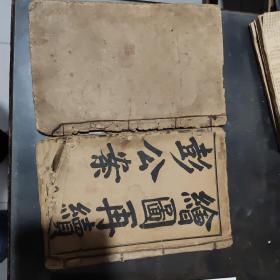 繪圖再續
彭公案